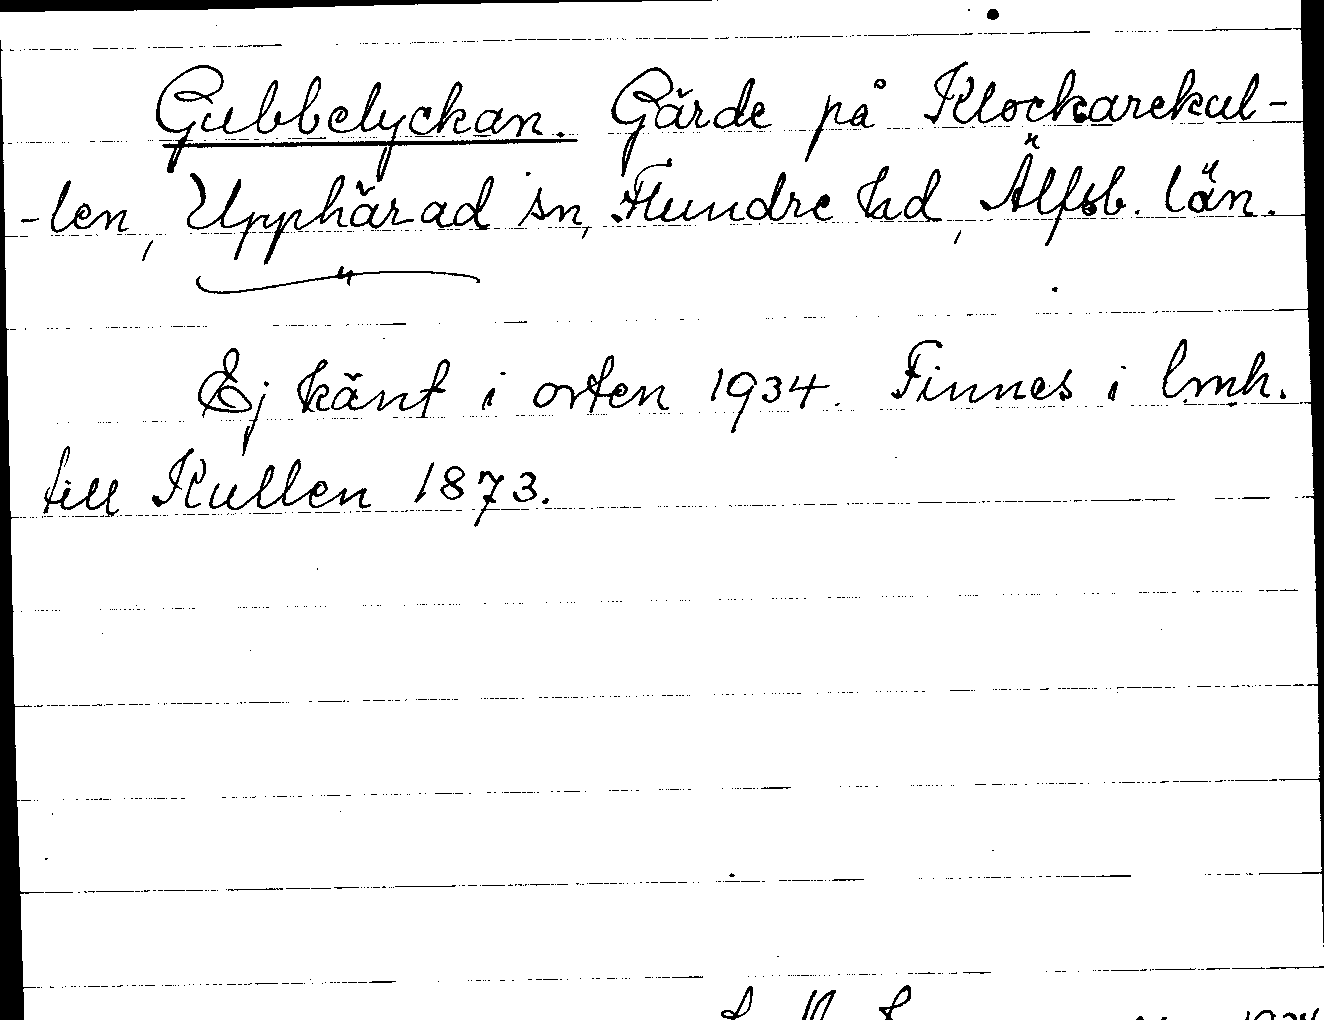 Gubbelyckan. Gärde på Klockarekul-
-len, Upphärad sn, Flundre hd, Älfsb. län.
Ej känt i orten 1934. Finnes i lmh.
till Kullen 1873.